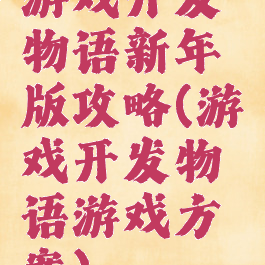 游戏开发
物语新年
版攻略(游
戏开发物
语游戏方
案)